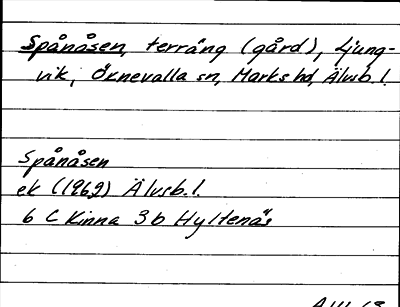 Spånåsen, terräng (gård), Ljung-
vik, Öxnevalla sn, Marks hd, Älvsb. l.
Spånåsen
ek (1969) Älvsb. l.
6 C Kinna 3b Hyltenäs